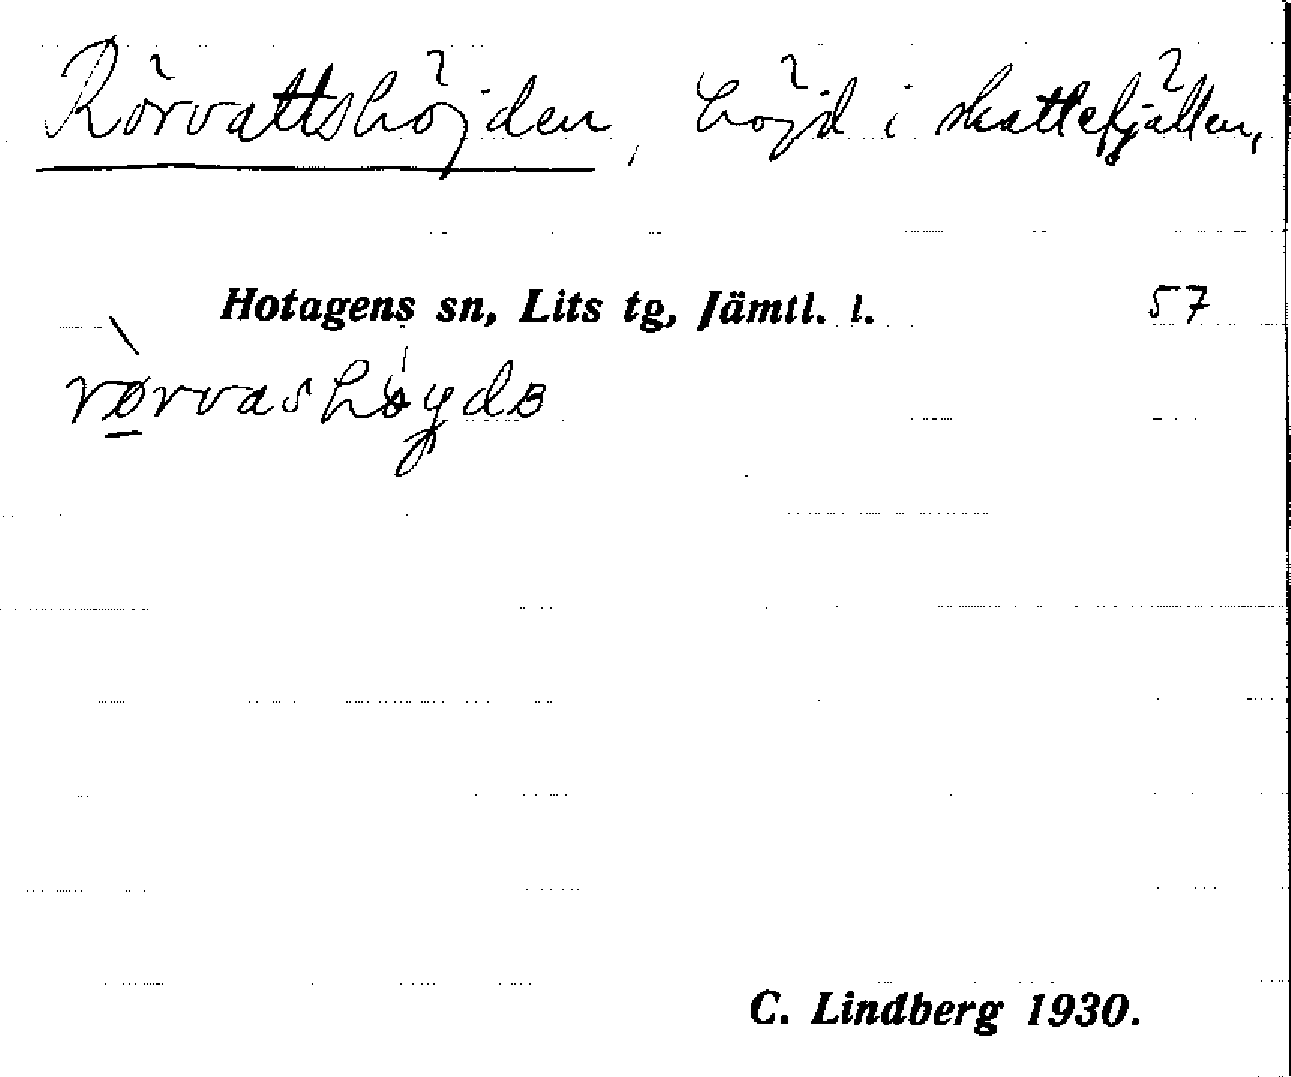 Rörvattshöjden, höjd i skattefjällen,
Hotagens sn, Lits tg, Jämtl. l. 57
rørvashøydɞ
C. Lindberg 1930.